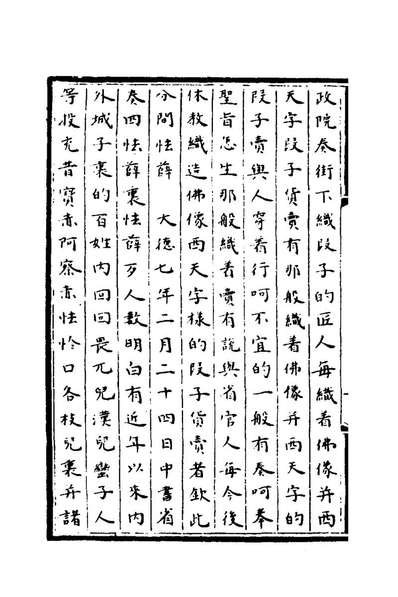 政院奏街下織段子的匠人每織着佛像并西
天字段子貨賣有那般織着佛像并西天字的
段子賣與人穿着行呵不宜的一般有奏呵奉
聖旨怎生那般織着賣有說與省官人每今後
休教織造佛像西天字樣的段子貨賣者欽此
分間怯薛　大德七年二月二十四日中書省
奏四怯薛裏怯薛歹人數明白有近年以來内
外城子裏的百姓内回回畏兀兒漢兒蠻子人
等投充昔寶赤阿察赤怯怜口各枝兒裏并諸